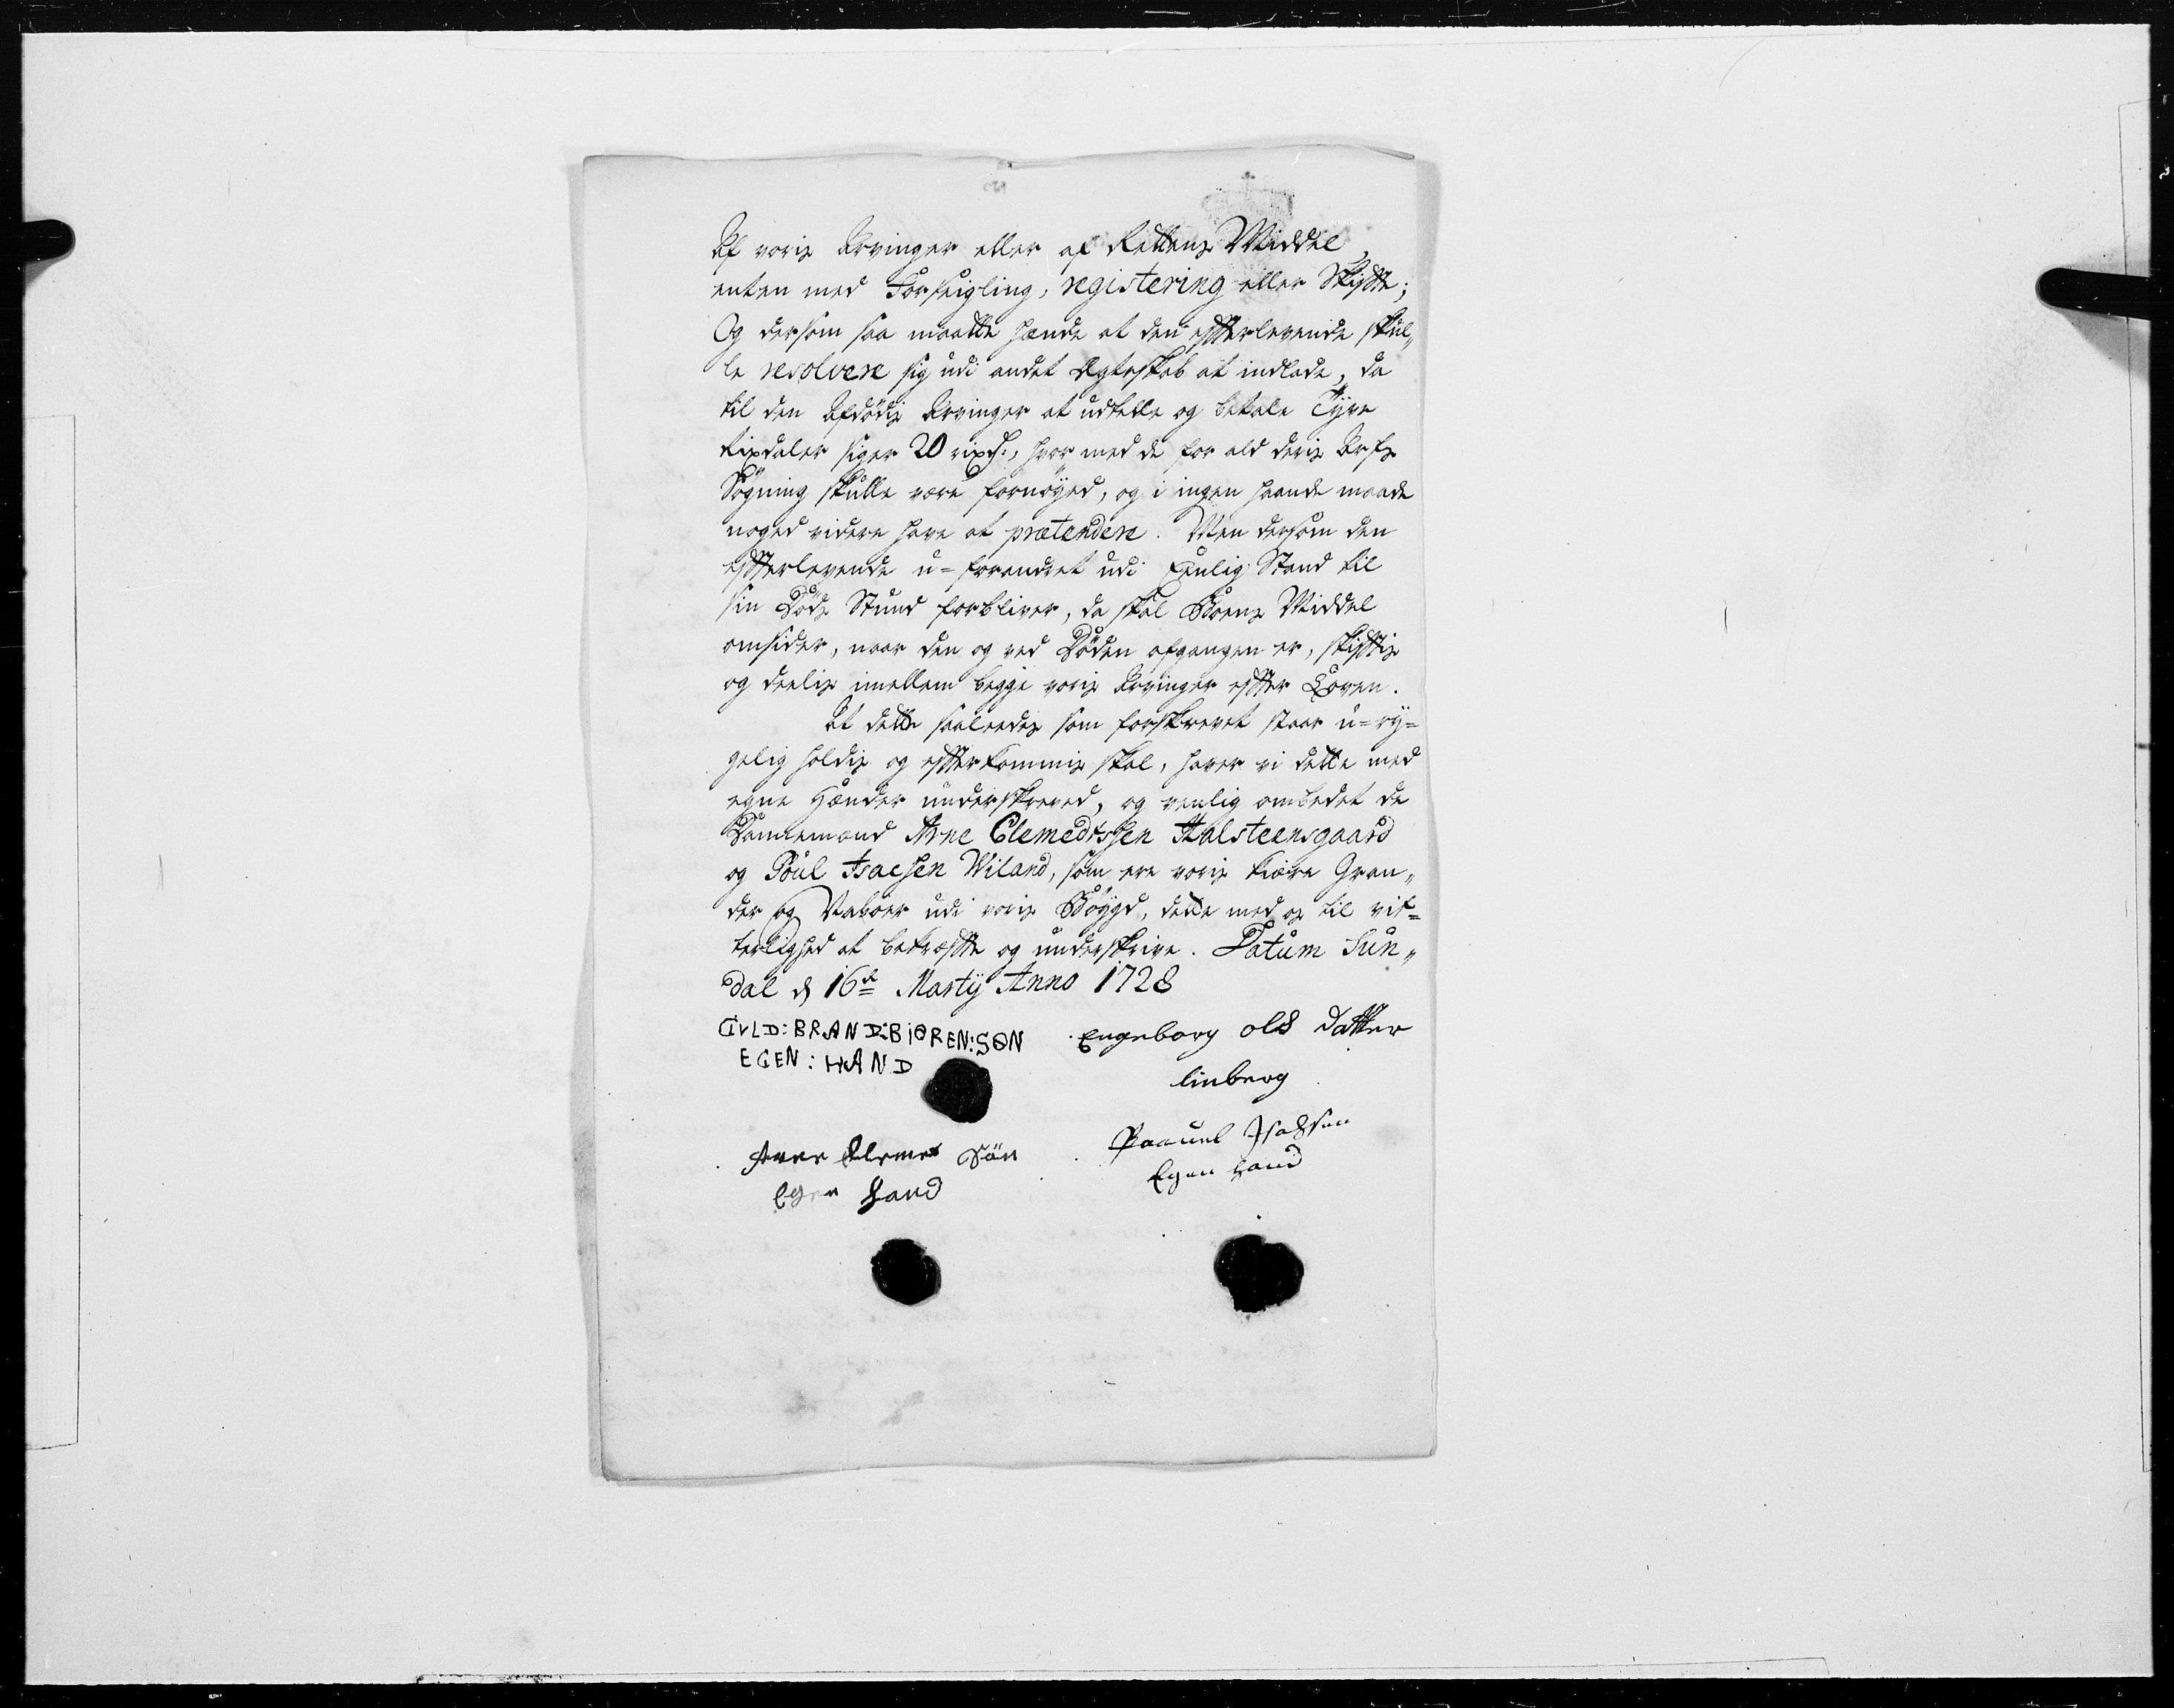 Af voris Arvinger eller af Rettens Middel,
enten med Forseigling, registering eller Skiffte;
Og dersom saa maatte hænde at den effterlevende skul„
le resolvere sig udi andet Ægteskab at indlade, da
til den Afdödis Arvinger at udtelle og betale Tyve
Rixdaler siger 20 rixd:, hvor med de for ald deris Arfs
Sögning skulle være fornöyed, og i ingen haande maade
noged videre have at prætendere. Men dersom den
effterlevende u=forandret udi Eenlig Stand til
sin Döds Stund forbliver, da skal Boens Middel
omsider, naar den og ved Döden afgangen er, skifftis
og deelis imellem begge voris Arvinger effter Loven.
At dette saaleedes som forskrevet staar u=ry=
gelig holdis og effterkommis skal, haver vi dette med
egne Hænder underskreved, og venlig ombedet de
Dannemænd Arne Clemedtssen Halsteensgaard
og Poul Isacsen Wiland, som ere voris kiære Gran„
der og Naboer udi voris Böygd, dette med os til vit=
terlighed at bekræffte og underskrive. Datum Sun„
dal d 16de Martij Anno 1728
GVLD:BRAND:BIØREN:SØN
EGEN:HAND
Engeborg ols datter
linberg
Arne Clemet Sön
Egen Hand
Paauel Isachsen
Egen Hand